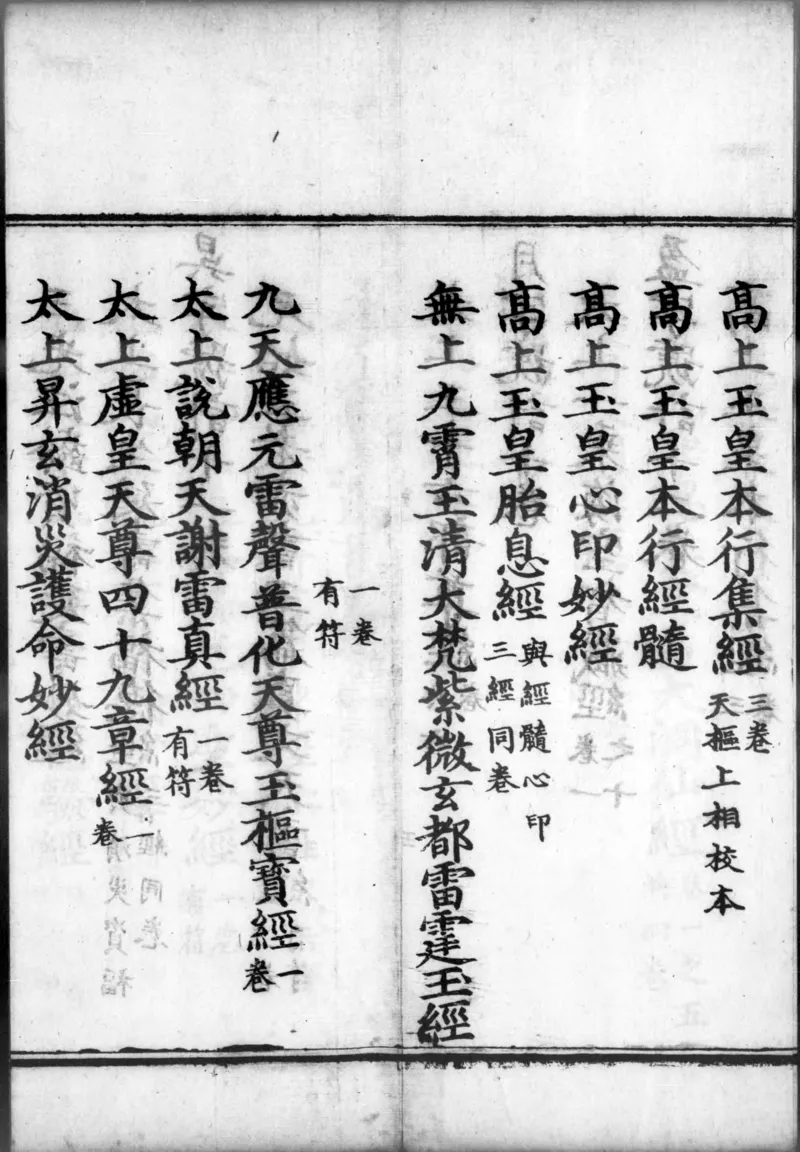 高上玉皇本行集經三卷天樞上相校本
高上玉皇本行經髓
高上玉皇心印妙經
高上玉皇胎息經與經髓心印三經同卷
無上九霄玉清大梵紫微玄都雷霆玉經
一卷有符
九天應元雷聲普化天尊玉樞寶經一卷
太上說朝天謝雷真經一卷有符
太上虛皇天尊四十九章經一卷
太上昇玄消災護命妙經